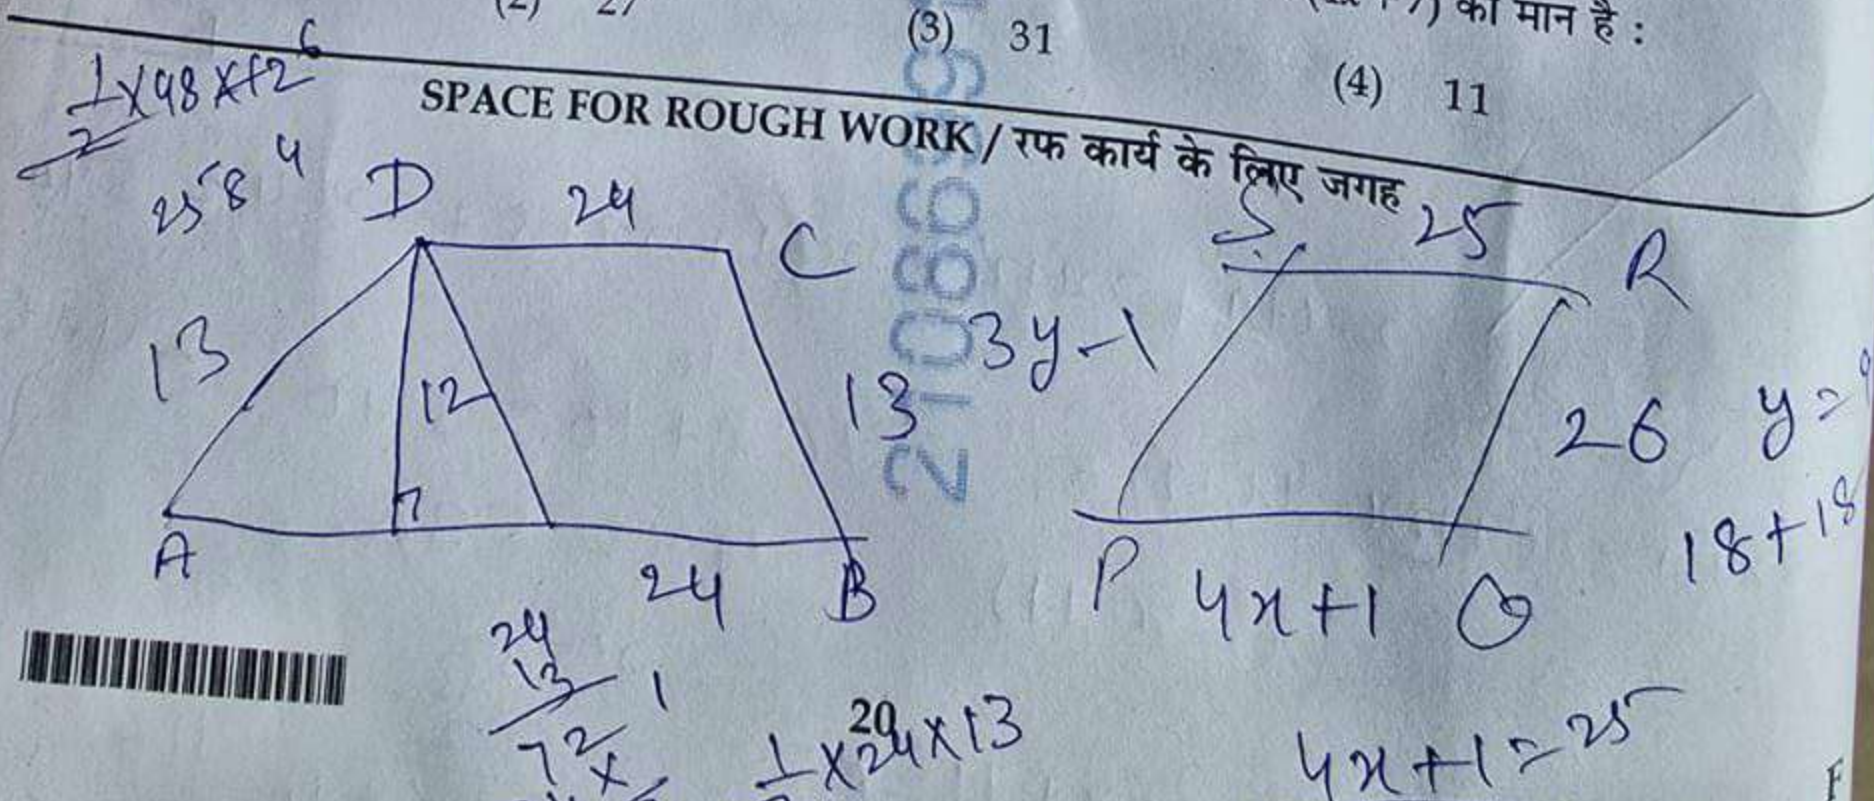 (2) 27
(3) 31
7) का मान है :
(4) 11
SPACE FOR ROUGH WORK / रफ कार्य के लिए जगह
1/2 × 48 × 12 6
25 8 4
D 24 C
13 12 13
A 24 B
S 25 R
3y-1 26
P 4x+1 Q
y=
18+18
24
13
72
1
20
1 × 24 × 13
4x+1=25
F